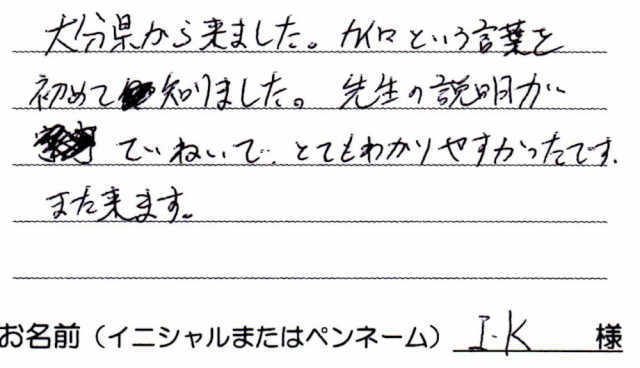 大分県から来ました。カイロという言葉を
初めて知りました。先生の説明が
ていねいで、とてもわかりやすかったです。
また来ます。
お名前（イニシャルまたはペンネーム） I.K 様